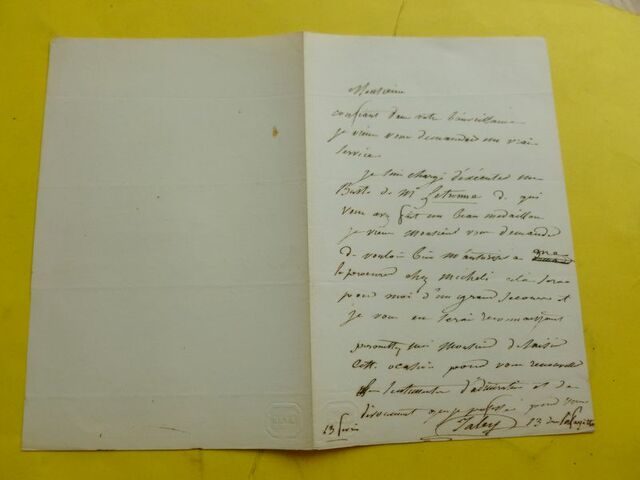 Monsieur
confiant dans votre bienveillance
je viens vous demander un vrai
service
je suis chargé d'exécuter un
Buste de Mr Letronne de qui
vous avez fait un beau medaillon
je viens Monsieur vous demander
de vouloir bien m'autoriser a me
le procurer chez Micheli cela sera
pour moi d'un grand secours et
je vous en serai reconnaissant
permettez moi Monsieur de saisir
cette ocasion pour vous renouveller
les sentiments d'admiration et de
devouement que je professe pour vous
13 fevrier
Taley 23